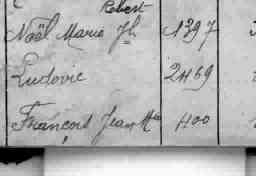 Robert
Noël Marie Jh 1397
Ludovic 2469
François Jean Mie 400